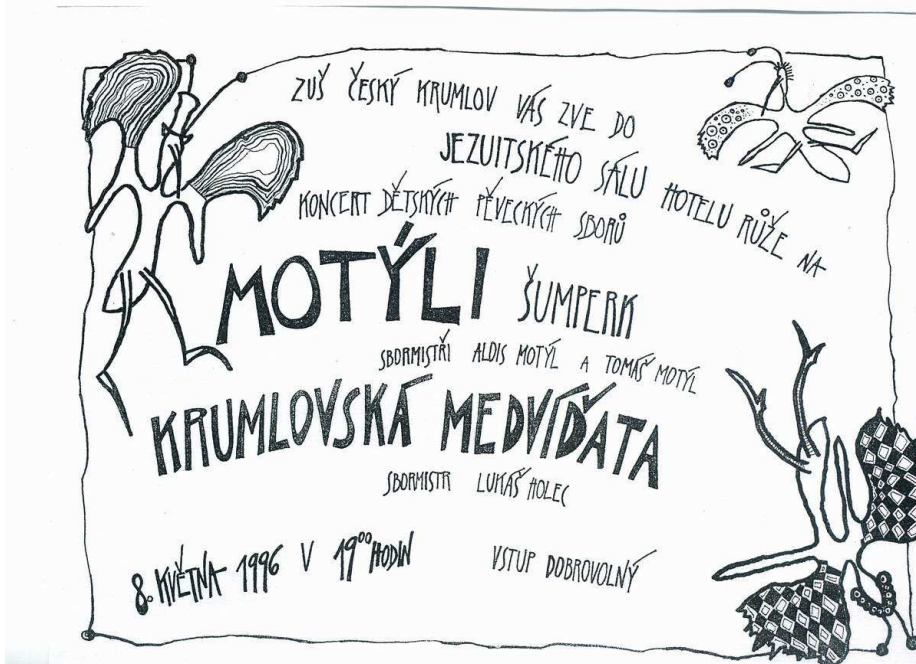 ZUŠ ČESKÝ KRUMLOV VÁS ZVE DO
JEZUITSKÉHO SÁLU HOTELU RŮŽE NA
KONCERT DĚTSKÝCH PĚVECKÝCH SBORŮ
MOTÝLI ŠUMPERK
SBORMISTŘI ALDIS MOTÝL A TOMÁŠ MOTÝL
KRUMLOVSKÁ MEDVÍĎATA
SBORMISTR LUKÁŠ HOLEC
8. KVĚTNA 1996 V 19⁰⁰ HODIN VSTUP DOBROVOLNÝ